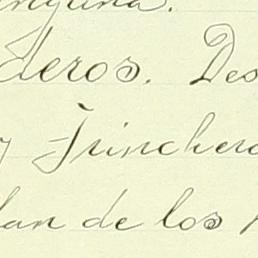 deros. Des
Trinchera
lan de los